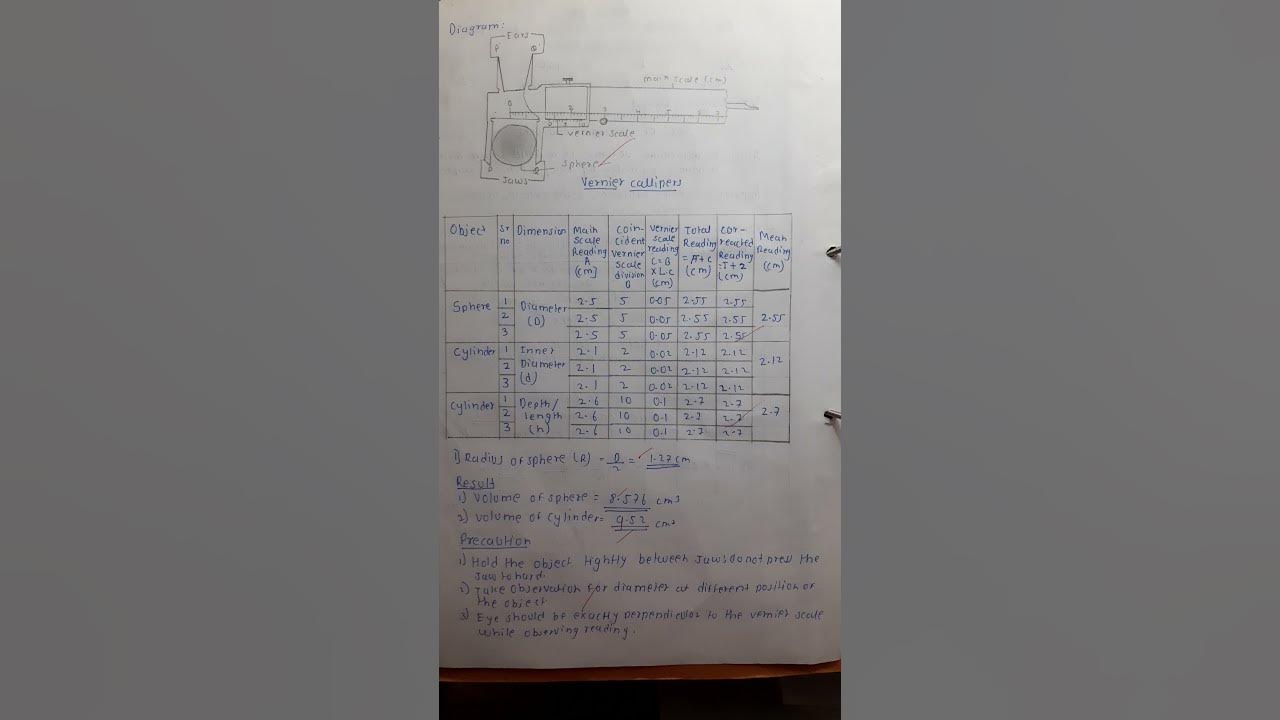 Diagram:
Ears
P Q'
main scale (cm)
0 2 3 4 5 6 7
vernier scale
sphere
P Q
Jaws
Vernier callipers
Object Sr no Dimension Main Scale Reading A (cm) Coin-cident vernier scale division B Vernier scale reading C=B X L.C (cm) Total Reading = A+C (cm) Cor-reacted Reading =T+Z (cm) Mean Reading (cm)
Sphere 1 Diameter (D) 2.5 5 0.05 2.55 2.55 2.55
2 2.5 5 0.05 2.55 2.55
3 2.5 5 0.05 2.55 2.55
Cylinder 1 Inner Diameter (d) 2.1 2 0.02 2.12 2.12 2.12
2 2.1 2 0.02 2.12 2.12
3 2.1 2 0.02 2.12 2.12
Cylinder 1 Depth/length (h) 2.6 10 0.1 2.7 2.7 2.7
2 2.6 10 0.1 2.7 2.7
3 2.6 10 0.1 2.7 2.7
1) Radius of sphere (R) = D/2 = 1.27 cm
Result
1) Volume of sphere = 8.576 cm3
2) Volume of cylinder = 9.52 cm3
Precaution
1) Hold the object lightly between Jaws do not press the
Jaw to hard.
2) Take observation for diameter at different position of
the object
3) Eye should be exactly perpendicular to the vernier scale
while observing reading.